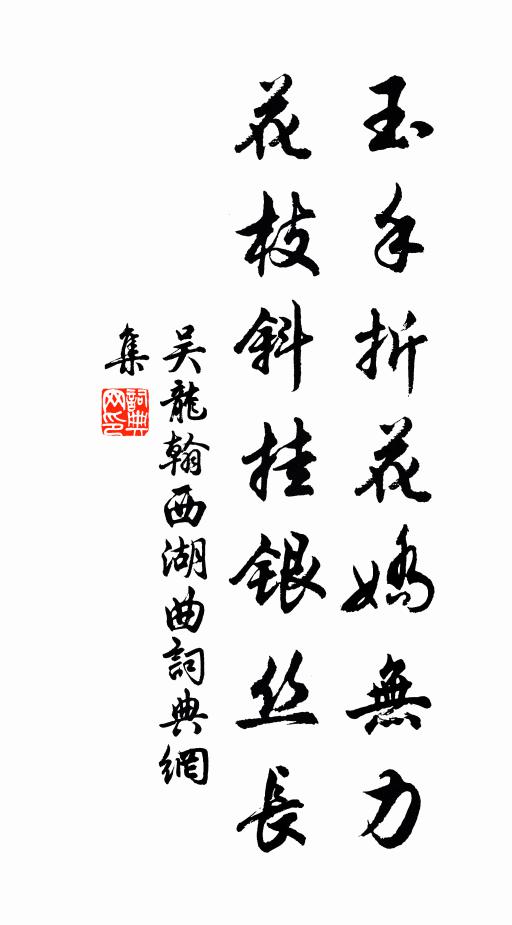 玉手折花嬌無力
花枝斜挂銀丝長
吴龍翰西湖曲詞典網
集
詞典
网印